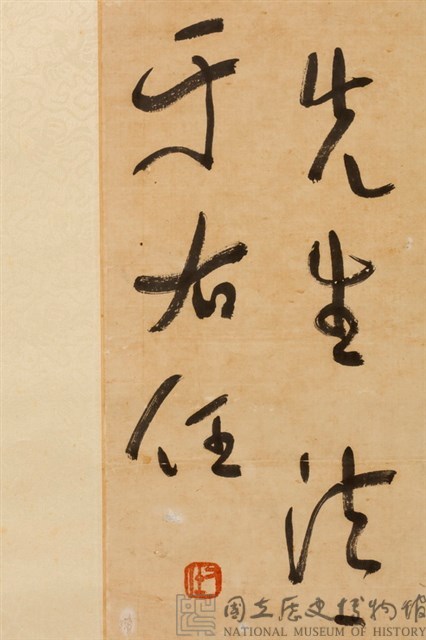 先生法
于右任
國立歷史博物館
NATIONAL MUSEUM OF HISTORY